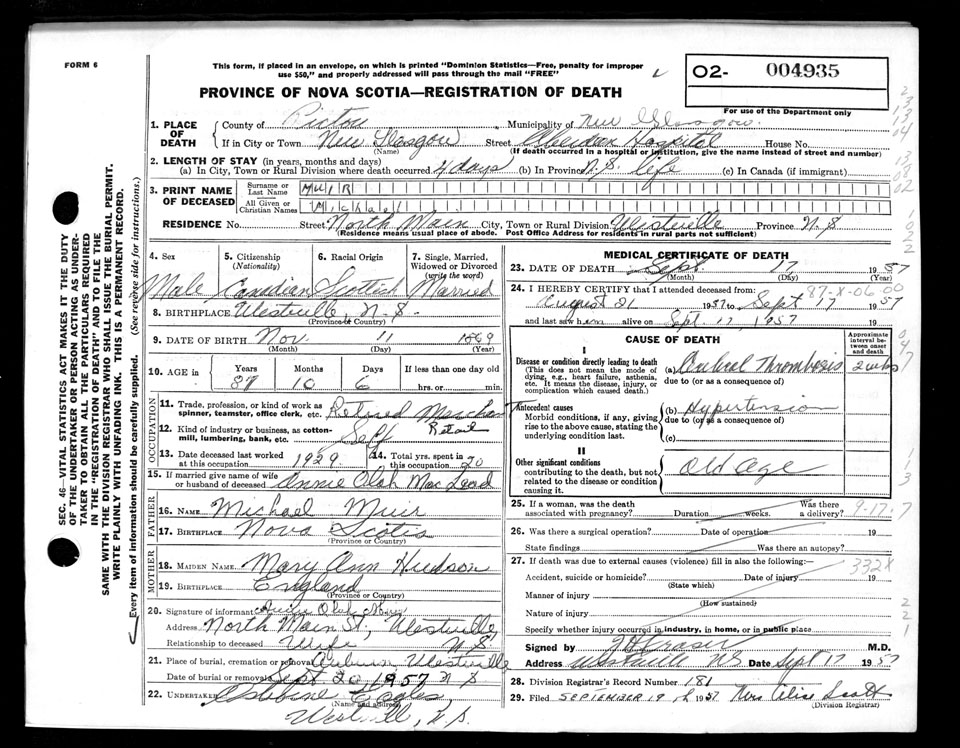 FORM 6
This form, if placed in an envelope, on which is printed "Dominion Statistics—Free, penalty for improper
use $50," and properly addressed will pass through the mail "FREE"
O2- 004935
PROVINCE OF NOVA SCOTIA—REGISTRATION OF DEATH
For use of the Department only
1. PLACE OF DEATH
County of Pictou Municipality of New Glasgow.
If in City or Town New Glasgow Street Aberdeen Hospital House No.
(Name) (If death occurred in a hospital or institution, give the name instead of street and number)
2. LENGTH OF STAY (in years, months and days)
(a) In City, Town or Rural Division where death occurred 4 days (b) In Province N.S. life (c) In Canada (if immigrant)
3. PRINT NAME OF DECEASED
Surname or Last Name MUIR
All Given or Christian Names Michael
RESIDENCE No. Street North Main City, Town or Rural Division Westville Province N.S
(Residence means usual place of abode. Post Office Address for residents in rural parts not sufficient)
SEC. 46—VITAL STATISTICS ACT MAKES IT THE DUTY
OF THE UNDERTAKER OR PERSON ACTING AS UNDER-
TAKER TO OBTAIN ALL THE PARTICULARS REQUIRED
IN THE "REGISTRATION OF DEATH" AND TO FILE THE
SAME WITH THE DIVISION REGISTRAR WHO SHALL ISSUE THE BURIAL PERMIT.
WRITE PLAINLY WITH UNFADING INK. THIS IS A PERMANENT RECORD.
Every item of information should be carefully supplied. (See reverse side for instructions.)
4. Sex
Male
5. Citizenship (Nationality)
Canadian
6. Racial Origin
Scottish
7. Single, Married, Widowed or Divorced (write the word)
Married
8. BIRTHPLACE Westville, N.S.
(Province or Country)
9. DATE OF BIRTH Nov. 11 1869
(Month) (Day) (Year)
10. AGE in
Years Months Days If less than one day old
87 10 6 hrs. or min.
OCCUPATION
11. Trade, profession, or kind of work as
spinner, teamster, office clerk, etc. Retired Merchant
12. Kind of industry or business, as cotton-
mill, lumbering, bank, etc. Self Retail
13. Date deceased last worked
at this occupation 1929
14. Total yrs. spent in
this occupation 20
15. If married give name of wife
or husband of deceased Annie Olah MacLeod
FATHER
16. NAME Michael Muir
17. BIRTHPLACE Nova Scotia
(Province or Country)
MOTHER
18. MAIDEN NAME Mary Ann Hudson
19. BIRTHPLACE England
(Province or Country)
20. Signature of informant Annie Olah Muir
Address North Main St., Westville, N.S.
Relationship to deceased Wife
21. Place of burial, cremation or removal Auburn Westville
Date of burial or removal Sept. 20 1957 N S
22. UNDERTAKER Eagles
(Name and address)
Westville, N.S.
MEDICAL CERTIFICATE OF DEATH
23. DATE OF DEATH Sept. 17 1957
(Month) (Day) (Year)
24. I HEREBY CERTIFY that I attended deceased from:
87-X-06 00
August 21 1957 to Sept. 17 1957
and last saw him alive on Sept. 17, 1957 19
CAUSE OF DEATH
Approximate interval between onset and death
I
Disease or condition directly leading to death
(This does not mean the mode of
dying, e.g., heart failure, asthenia,
etc. It means the disease, injury, or
complication which caused death.)
(a) Cerebral Thrombosis 2 wks
due to (or as a consequence of)
Antecedent causes
Morbid conditions, if any, giving
rise to the above cause, stating the
underlying condition last.
(b) Hypertension
due to (or as a consequence of)
(c)
II
Other significant conditions
contributing to the death, but not
related to the disease or condition
causing it.
Old Age
25. If a woman, was the death associated with pregnancy? Duration weeks. Was there a delivery?
9-17-7
26. Was there a surgical operation? Date of operation 19
State findings Was there an autopsy?
27. If death was due to external causes (violence) fill in also the following:
332X
Accident, suicide or homicide? Date of injury 19
(State which)
Manner of injury
(How sustained)
Nature of injury
Specify whether injury occurred in industry, in home, or in public place
Signed by J H Fraser M.D.
Address Westville N.S. Date Sept 17 1957
28. Division Registrar's Record Number 181
29. Filed SEPTEMBER 19, 1957 Mrs Alice Scott
(Division Registrar)